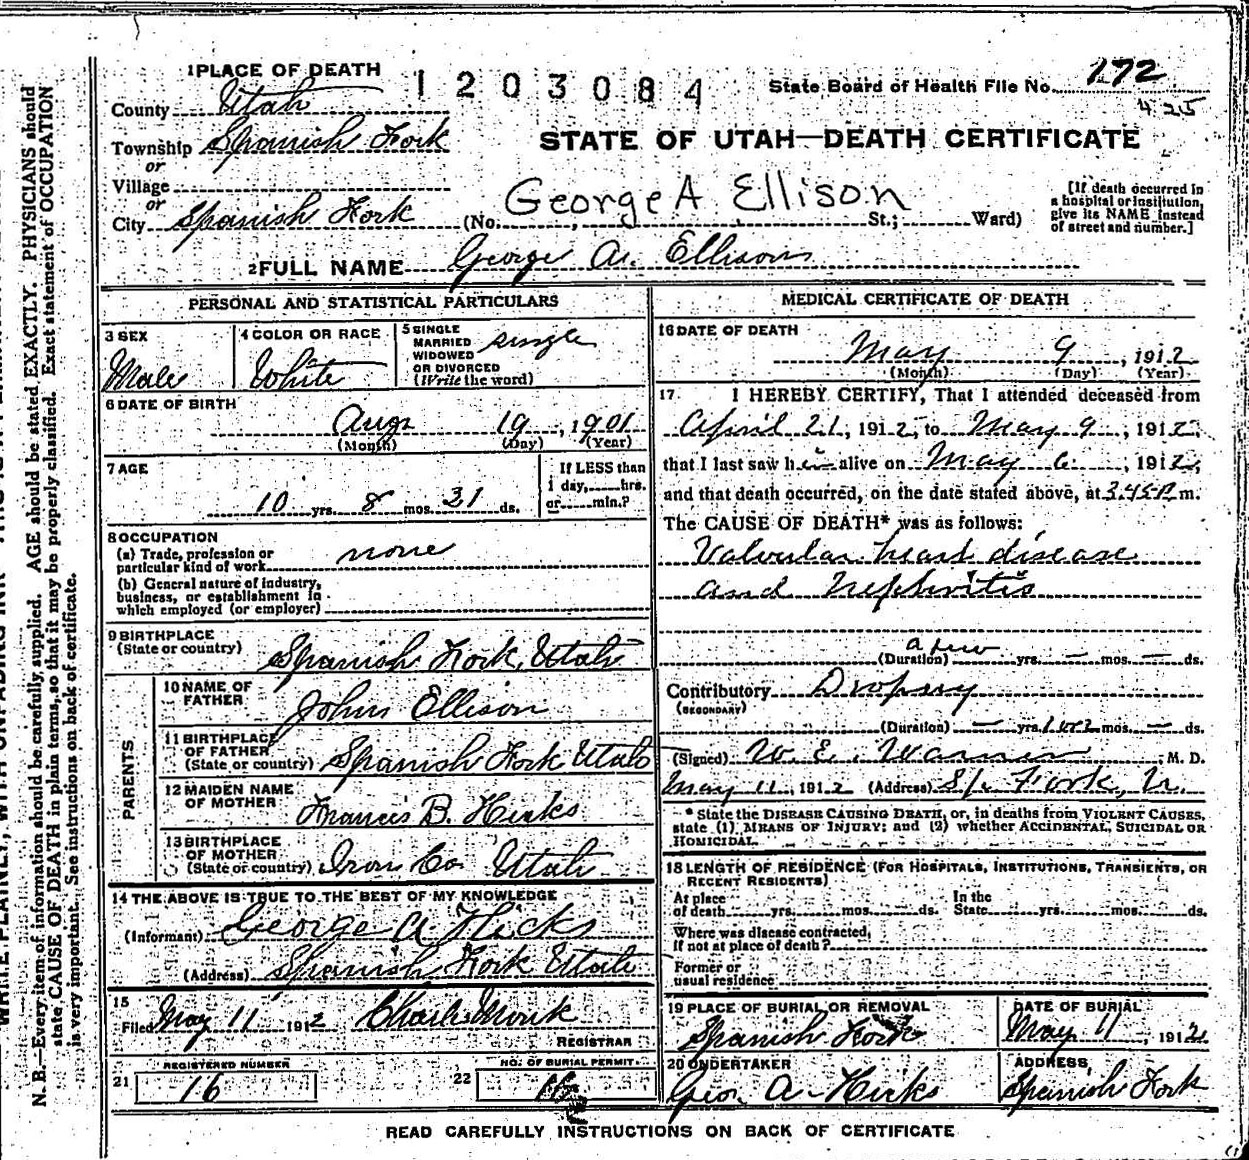 1 PLACE OF DEATH
1203084
State Board of Health File No. 172
425
County Utah
Township Spanish Fork
or
Village
or
City Spanish Fork
STATE OF UTAH—DEATH CERTIFICATE
George A Ellison
(No. , St.; Ward)
[If death occurred in
a hospital or institution,
give its NAME instead
of street and number.]
2 FULL NAME George A. Ellison
PERSONAL AND STATISTICAL PARTICULARS
3 SEX
Male
4 COLOR OR RACE
White
5 SINGLE
MARRIED
WIDOWED
OR DIVORCED
(Write the word)
single
6 DATE OF BIRTH
Aug 19, 1901
(Month) (Day) (Year)
7 AGE
10 yrs. 8 mos. 31 ds.
If LESS than
1 day, hrs.
or min.?
8 OCCUPATION
(a) Trade, profession or
particular kind of work none
(b) General nature of industry,
business, or establishment in
which employed (or employer)
9 BIRTHPLACE
(State or country) Spanish Fork, Utah
PARENTS
10 NAME OF
FATHER John Ellison
11 BIRTHPLACE
OF FATHER
(State or country) Spanish Fork Utah
12 MAIDEN NAME
OF MOTHER Frances B. Hicks
13 BIRTHPLACE
OF MOTHER
(State or country) Iron Co Utah
14 THE ABOVE IS TRUE TO THE BEST OF MY KNOWLEDGE
(Informant) George A Hicks
(Address) Spanish Fork Utah
15
Filed May 11 1912 Monk
REGISTRAR
REGISTERED NUMBER
21 16
NO. OF BURIAL PERMIT.
22 16
MEDICAL CERTIFICATE OF DEATH
16 DATE OF DEATH
May 9, 1912
(Month) (Day) (Year)
17 I HEREBY CERTIFY, That I attended deceased from
April 21, 1912, to May 9, 1912,
that I last saw him alive on May 6, 1912,
and that death occurred, on the date stated above, at 3.45 P m.
The CAUSE OF DEATH* was as follows:
Valvular heart disease
and Nephritis
(Duration) a few yrs. — mos. — ds.
Contributory Dropsy
(SECONDARY)
(Duration) — yrs. 1 or 2 mos. — ds.
(Signed) W. E. Warner, M. D.
May 11, 1912 (Address) Sp. Fork, U.
* State the DISEASE CAUSING DEATH, or, in deaths from VIOLENT CAUSES,
state (1) MEANS OF INJURY; and (2) whether ACCIDENTAL, SUICIDAL OR
HOMICIDAL.
18 LENGTH OF RESIDENCE (FOR HOSPITALS, INSTITUTIONS, TRANSIENTS, OR
RECENT RESIDENTS)
At place
of death yrs. mos. ds.
In the
State yrs. mos. ds.
Where was disease contracted,
if not at place of death?
Former or
usual residence
19 PLACE OF BURIAL OR REMOVAL
Spanish Fork
DATE OF BURIAL
May 11, 1912
20 UNDERTAKER
Geo. A. Hicks
ADDRESS
Spanish Fork
READ CAREFULLY INSTRUCTIONS ON BACK OF CERTIFICATE
N. B.—Every item of information should be carefully supplied. AGE should be stated EXACTLY. PHYSICIANS should
state CAUSE OF DEATH in plain terms, so that it may be properly classified. Exact statement of OCCUPATION
is very important. See instructions on back of certificate.